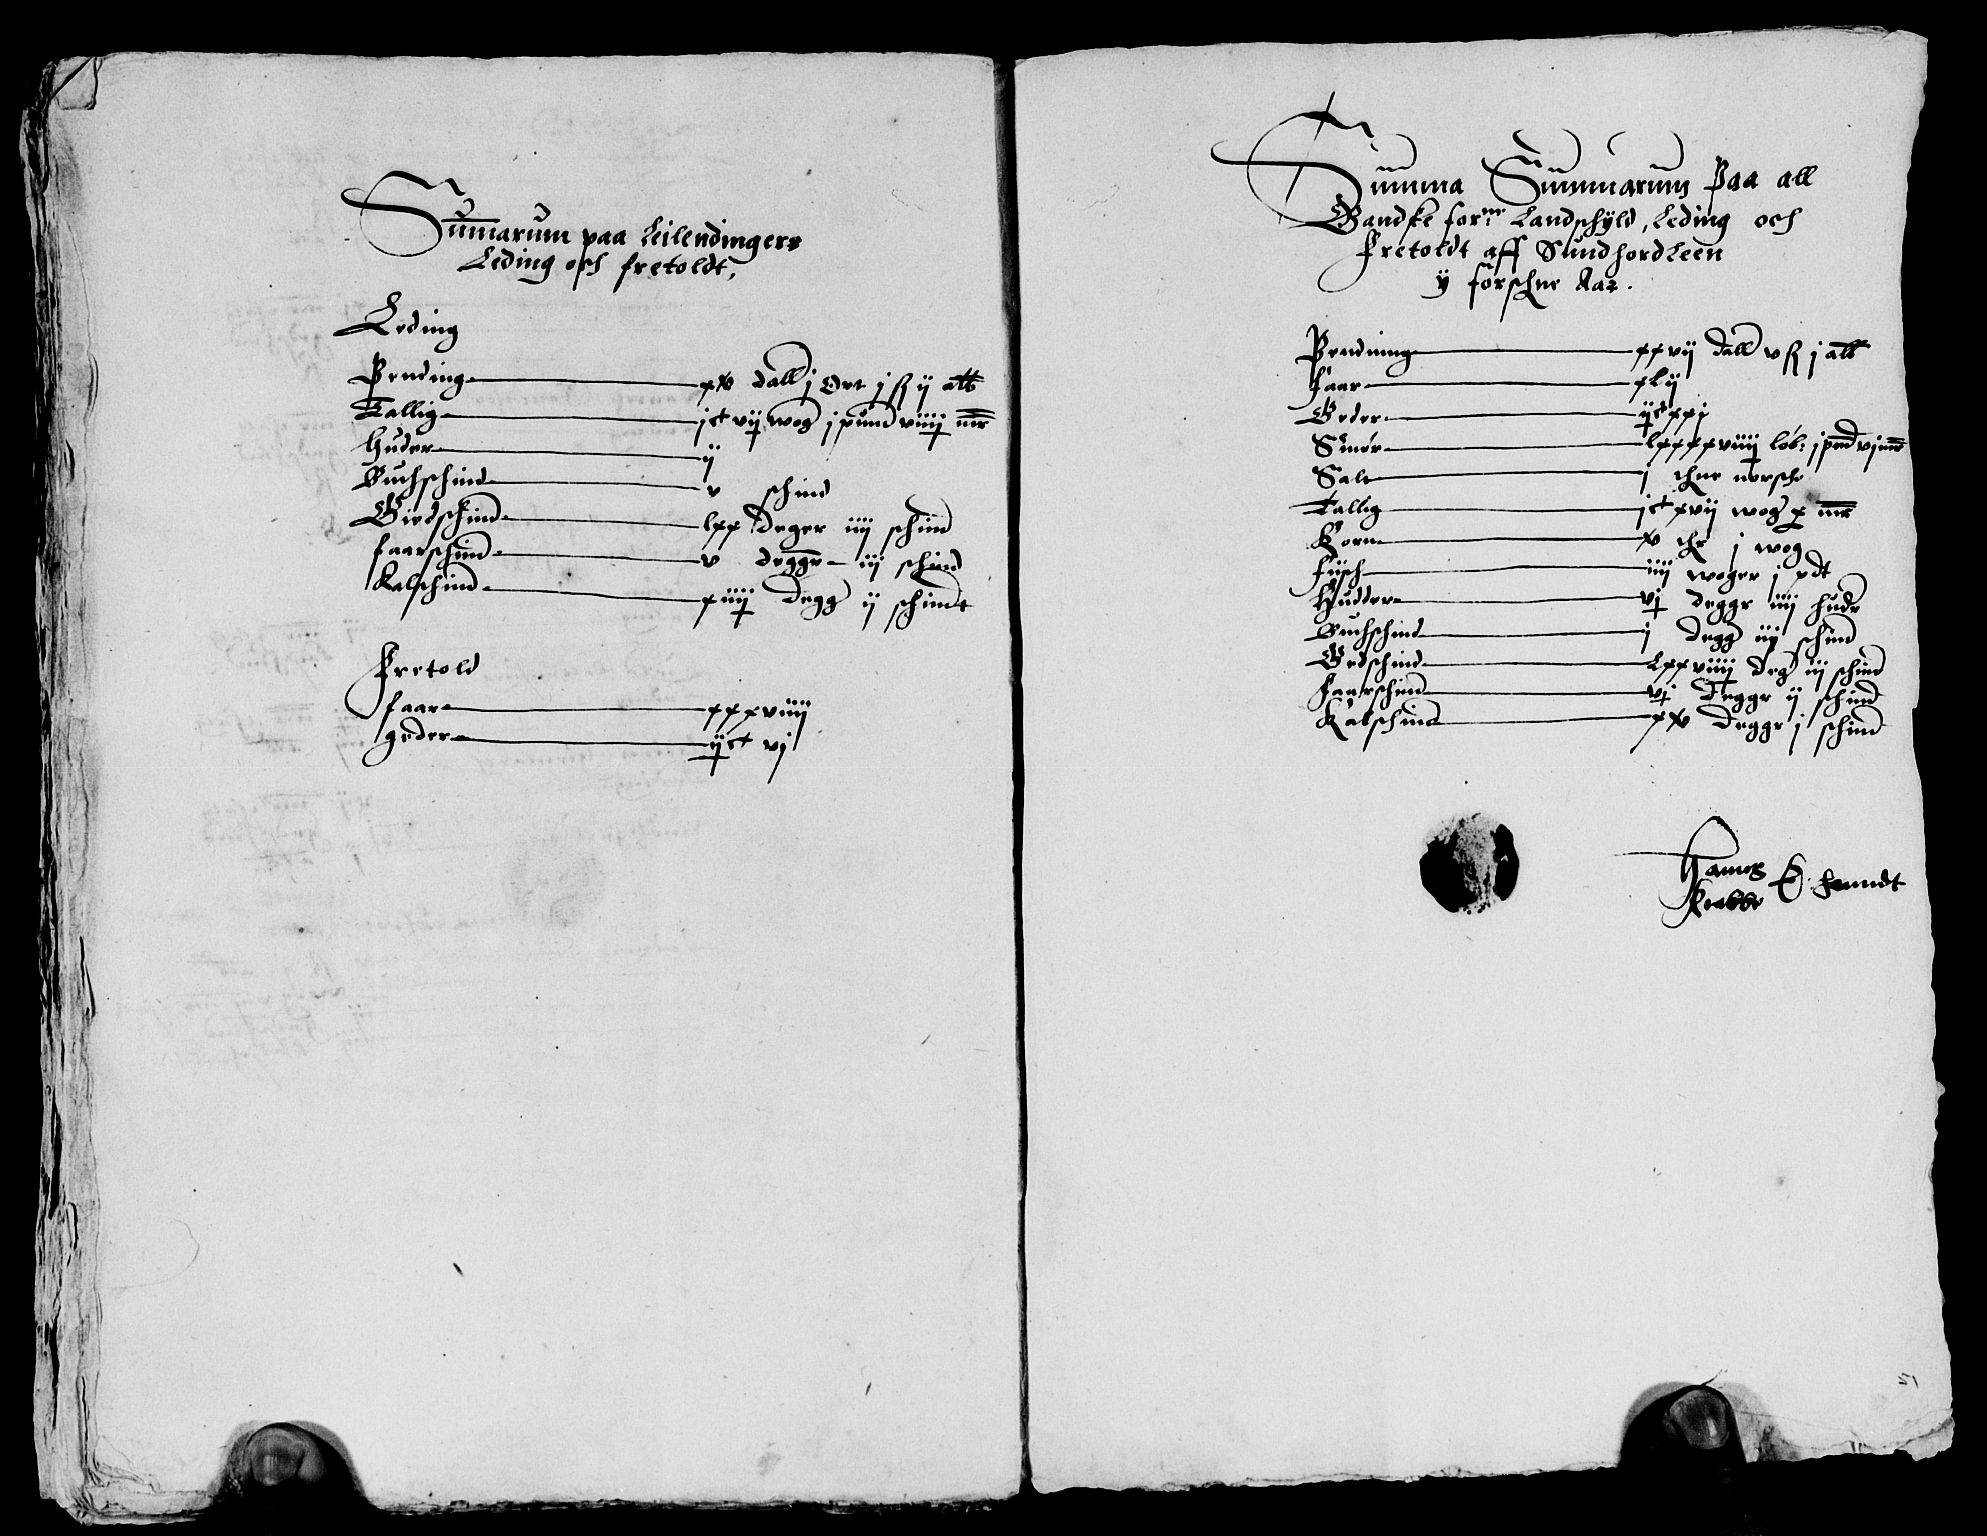 Summarum paa Leilendingers
Leding och fretoldt,
Leding
Pending — xv dall j Ort j ß ij alb
Tallig — jc vij wog j pund viiij mr
Huder — ij
Buchschind — v schind
Giedschind — lxx deger iiij schind
faarschind — v deggr iij schind
Kalschind — xiiij degg ij schindt
Fretold
faar — xxxviiij
geder — ijc vj
Summa Summarum Paa all
Gandske for:ne Landschyld, Leding och
Fretoldt aff Sundhordleen
y forschne Aar.
Pendning — xxvij dall v ß j alb
Faar — xlij
Geder — ijc xxj
Smør — lxxxxviiij løb: j pnd vj mr
Salt — j thne norsche
Tallig — jc xvij wog x mr
Korn — xv thr j wog
Fisch — iiij woger j pdt
Hudder — vj deggr iiij hudr
Buchschind — j degg iij schind
Gedschind — lxxviiij deg iij schind
Faarschind — vj deggr ij schind
Kalschind — xxv deggr j schind
Hannos